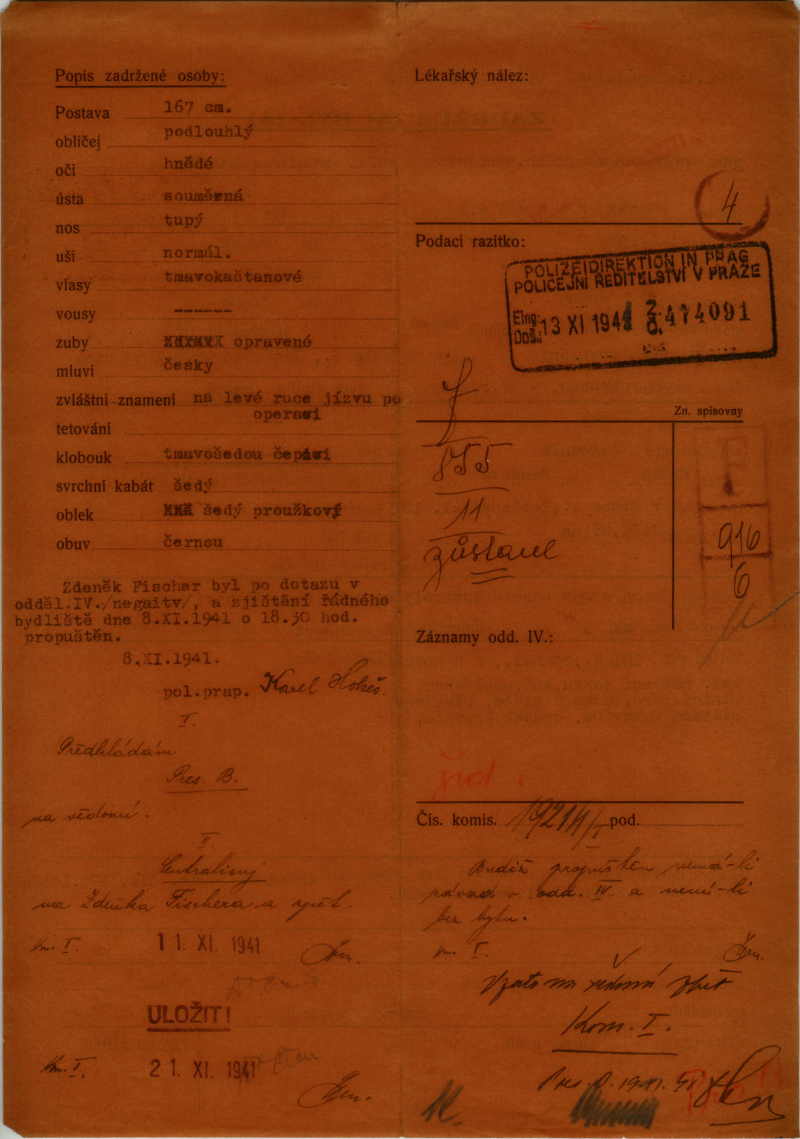 Popis zadržené osoby:
Postava 167 cm.
obličej podlouhlý
oči hnědé
ústa souměrná
nos tupý
uši normál.
vlasy tmavokaštanové
vousy ------
zuby opravené
mluví česky
zvláštní znamení na levé ruce jízvu po
operaci
tetování
klobouk tmavošedou čepici
svrchní kabát šedý
oblek šedý proužkový
obuv černou
Zdeněk Fischer byl po dotazu v
odděl.IV./negaitv/, a zjištění řádného
bydliště dne 8.XI.1941 o 18.30 hod.
propuštěn.
8.XI.1941.
pol.prap. Karel
I.
Předkládám
Pres. B.
na vědomí.
II.
na Zdeňka Fischera a zpět.
11. XI. 1941
ULOŽIT!
21. XI. 1941
Lékařský nález:
4
Podací razítko:
POLIZEIDIREKTION IN PRAG
POLICEJNÍ ŘEDITELSTVÍ V PRAZE
Eing.
Doš. 13 XI 1941 474091
Zn. spisovny
F
855
11
zůstane
916
6
Záznamy odd. IV.:
žid.
Čís. komis. 19214/I pod.
Budiž propuštěn nemá-li
závad v odd. IV a není-li
bez bytu.
I.
Vzato na vědomí zpět
Kom. I.
Pres. B. 19.XI.41